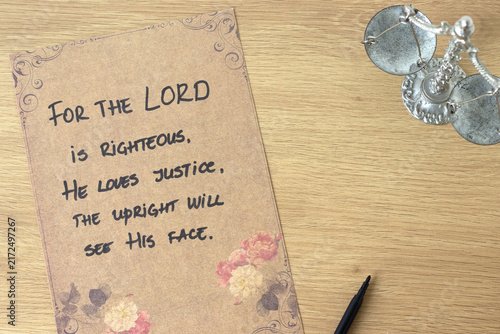 FOR THE LORD
is RiGHTEOUS,
HE LOVES JUSTiCE,
THE UPRiGHT WiLL
SEE HiS FACE.
Adobe Stock | #2172497267